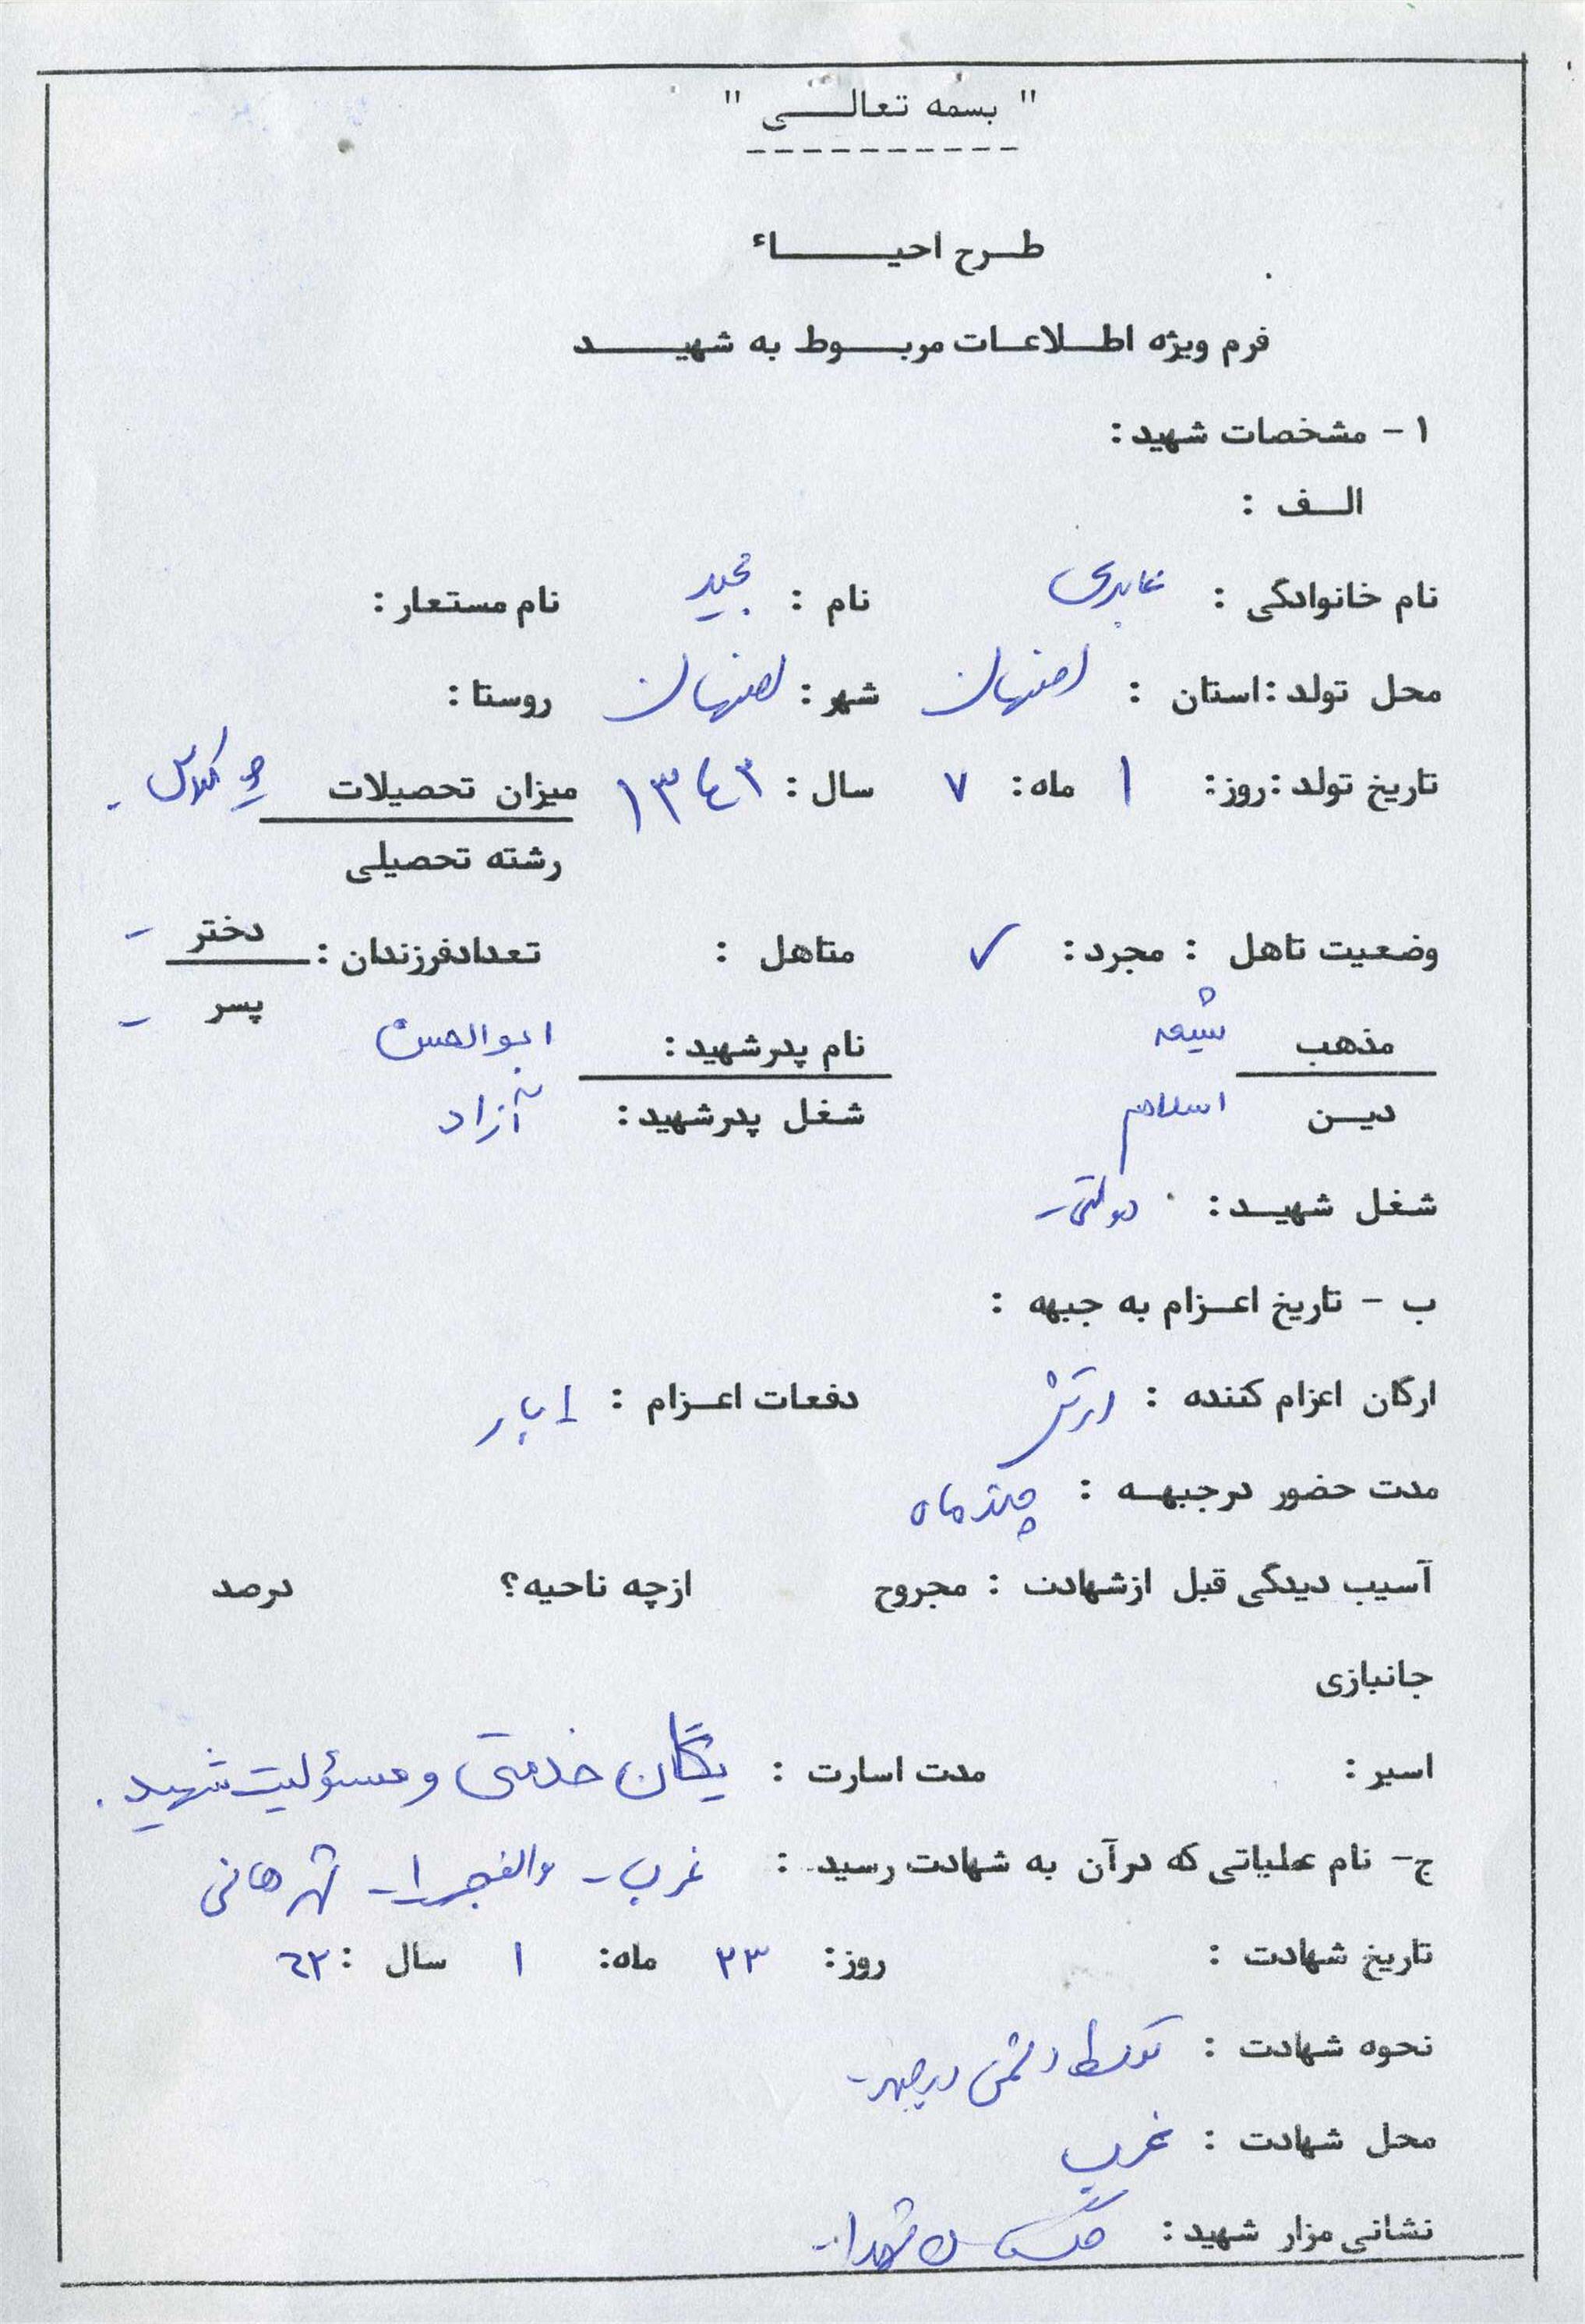 " بسمه تعالی "
طرح احیاء
فرم ویژه اطلاعات مربوط به شهید
۱ - مشخصات شهید :
الف :
نام خانوادگی : عابدی نام : مجید نام مستعار :
محل تولد : استان : اصفهان شهر : اصفهان روستا :
تاریخ تولد : روز : ۱ ماه : ۷ سال : ۱۳۴۳ میزان تحصیلات
رشته تحصیلی
وضعیت تاهل : مجرد : ✓ متاهل : تعدادفرزندان : دختر -
پسر -
مذهب شیعه نام پدرشهید : ابوالحسن
دین اسلام شغل پدرشهید : آزاد
شغل شهید : دولتی -
ب - تاریخ اعزام به جبهه :
ارگان اعزام کننده : ارتش دفعات اعزام : ۱ بار
مدت حضور درجبهه : چند ماه
آسیب دیدگی قبل ازشهادت : مجروح ازچه ناحیه؟ درصد
جانبازی
اسیر : مدت اسارت : یگان خدمتی و مسؤلیت شهید .
ج- نام عملیاتی که درآن به شهادت رسید : غرب - والفجر ۱ -
تاریخ شهادت : روز : ۲۳ ماه : ۱ سال : ۶۲
نحوه شهادت : توسط دشمن در جبهه -
محل شهادت : غرب
نشانی مزار شهید : گلستان شهدا -